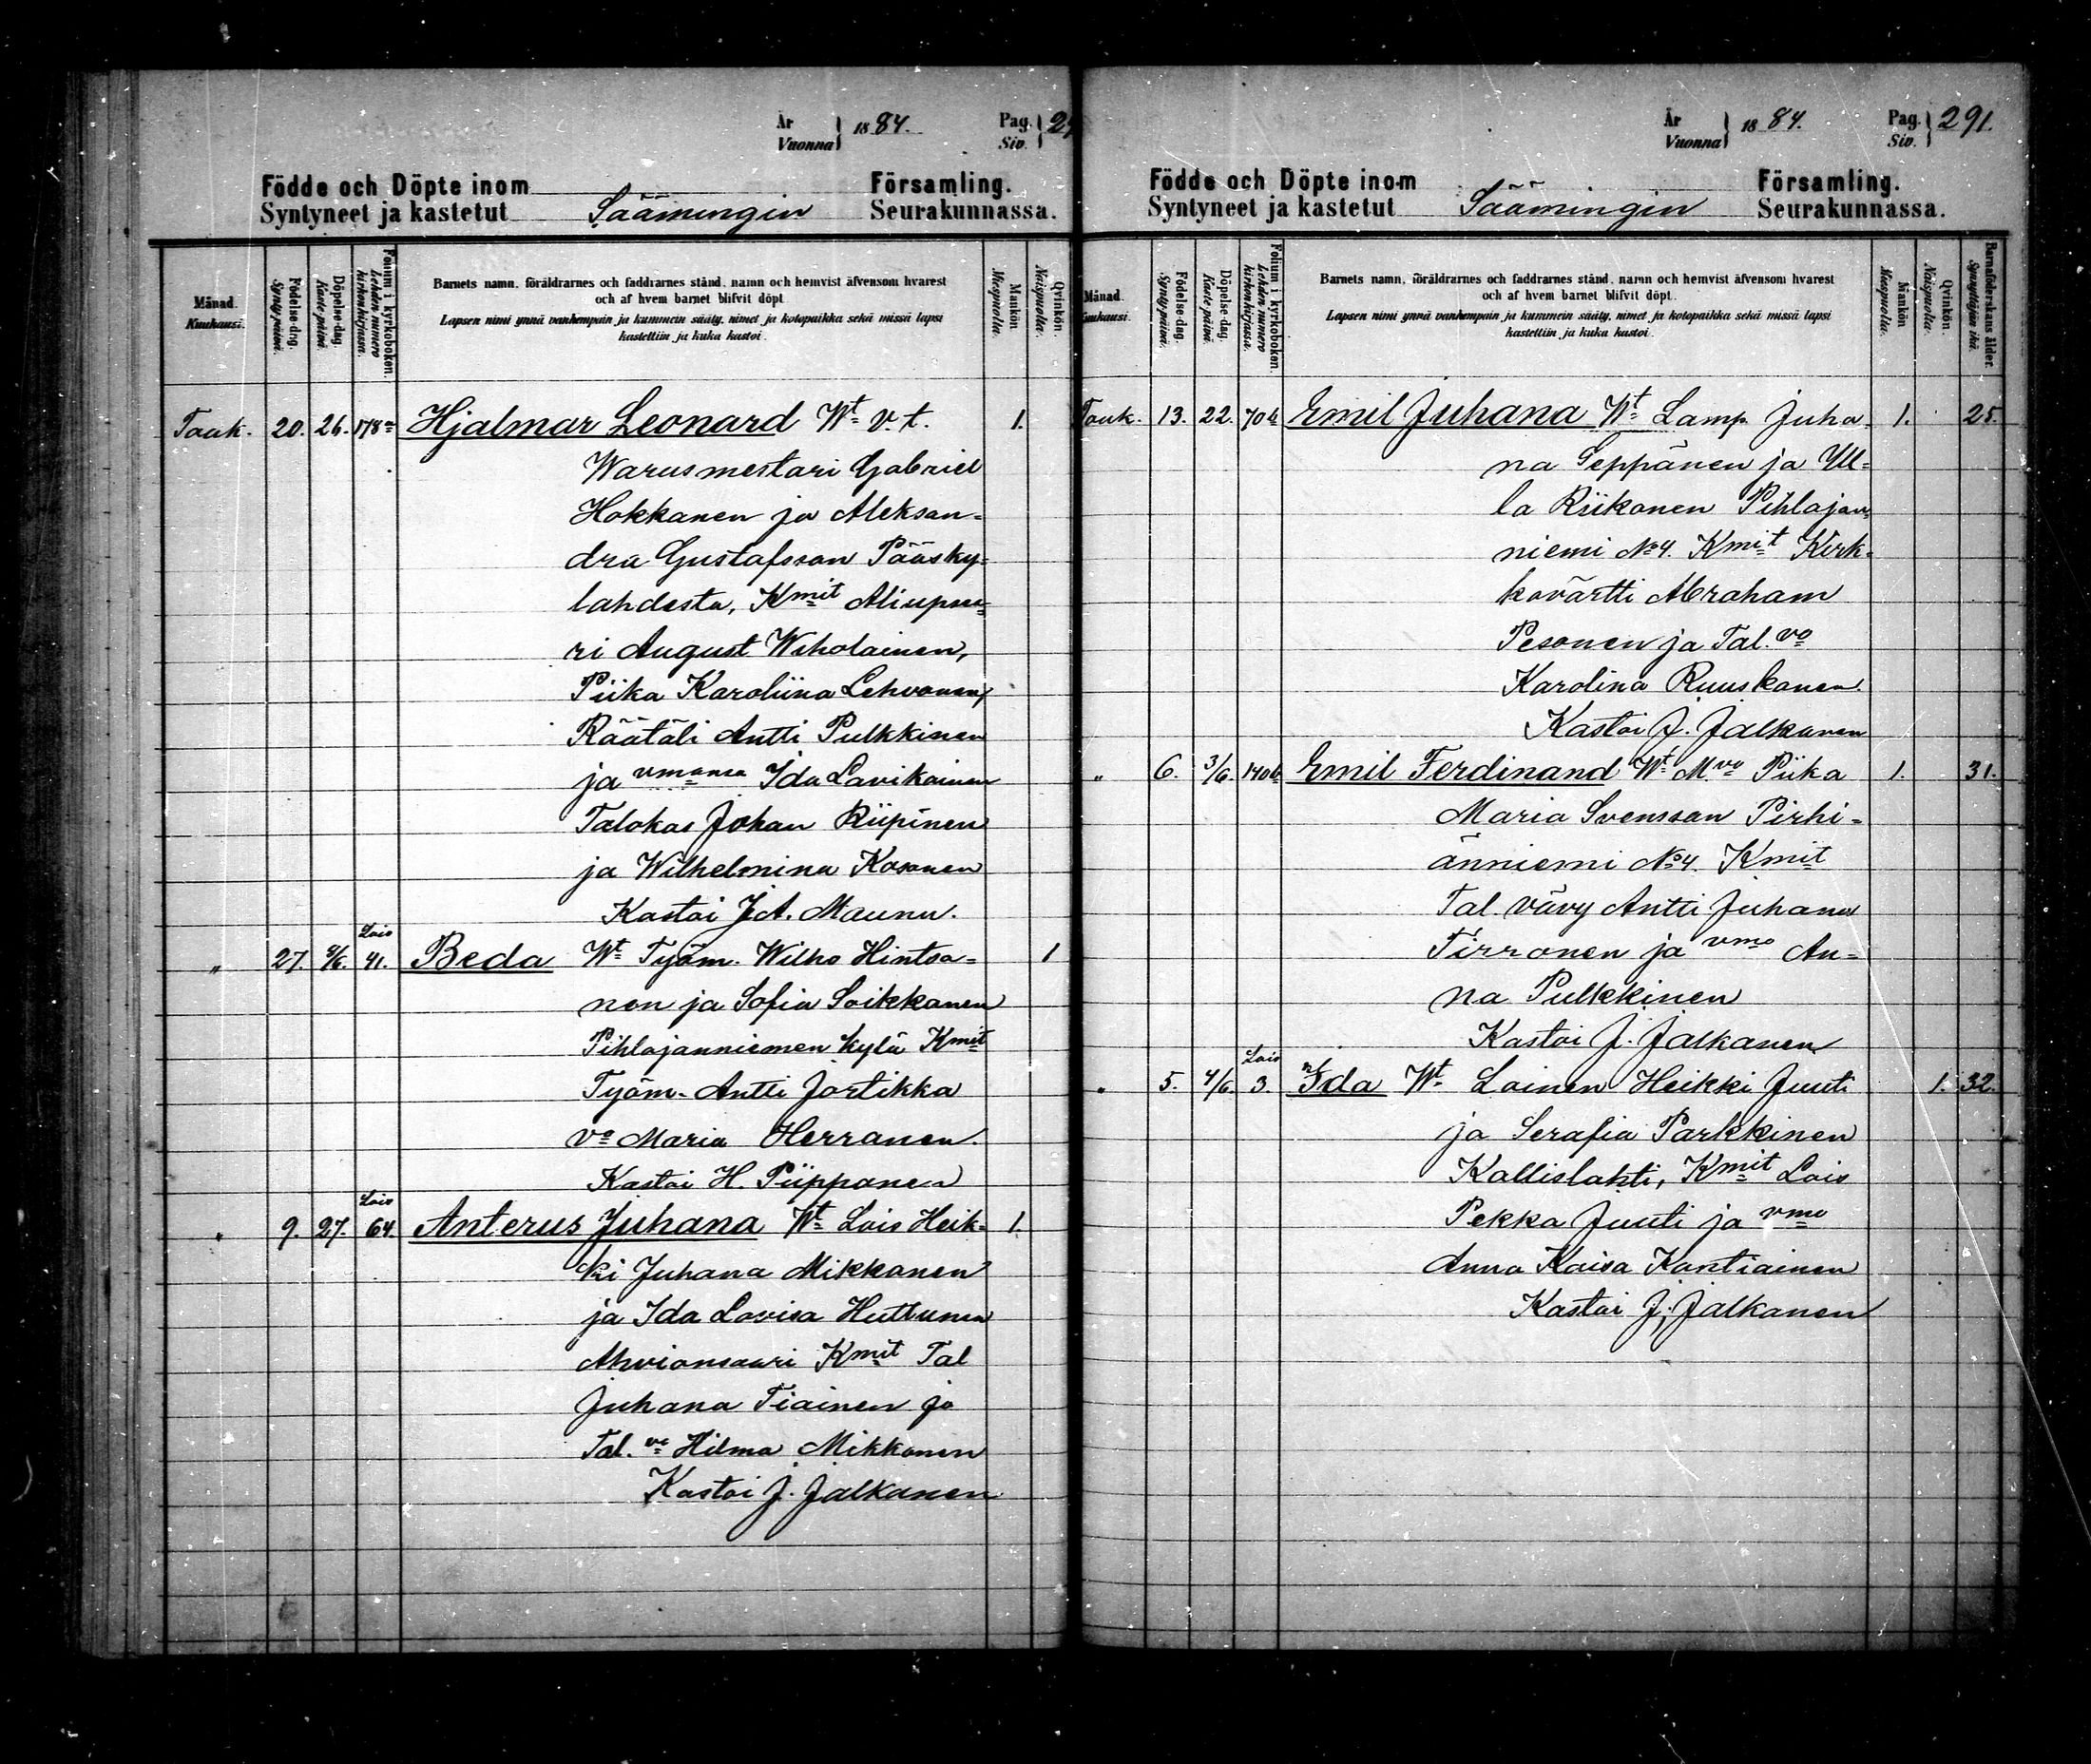 År
Vuonna } 1884. Pag. Siv. } 29
Födde och Döpte inom
Syntyneet ja kastetut Säämingin Församling.
Seurakunnassa.
Månad. Kuukausi.
Födelse-dag. Syntypäivä.
Döpelse-dag. Kaste-päivä.
Folium i kyrkobokon. Lehden numero kirkonkirjassa.
Barnets namn, föräldrarnes och faddrarnes stånd, namn och hemvist äfvensom hvarest
och af hvem barnet blifvit döpt.
Lapsen nimi ynnä vanhempain ja kummein sääty, nimet ja kotopaikka sekä missä lapsi
kastettiin ja kuka kastoi.
Mankön Miespuolia.
Qvinkön. Naispuolia.
Touk. 20. 26. 178 Hjalmar Leonard Wt v. t. 1.
Warusmestari Gabriel
Hokkanen ja Aleksan=
dra Gustafsson Pääsky=
lahdesta, Kmit Aliupsee=
ri August Wiholainen,
Piika Karoliina Lehvonen,
Räätäli Antti Pulkkinen
ja vmonsa Ida Lavikainen
Talokas Johan Riipinen
ja Wilhelmina Kosonen
Kastoi J.A. Maunu.
Lois
„ 27. 2/6. 41. Beda Wt Työm. Wilho Hintsa= 1
nen ja Sofia Soikkanen
Pihlajanniemen kylä Kmit
Työm. Antti Jortikka
vo Maria Herranen.
Kastoi H. Piipponen
Lois
„ 9. 27. 64. Anterus Juhana Wt Lois Heik= 1.
ki Juhana Mikkonen
ja Ida Lovisa Huttunen
Ahvionsaari Kmit Tal
Juhana Tiainen ja
Tal. vo Hilma Mikkonen
Kastoi J. Jalkanen
År
Vuonna } 1884. Pag. Siv. } 291.
Födde och Döpte inom
Syntyneet ja kastetut Säämingin Församling.
Seurakunnassa.
Månad. Kuukausi.
Födelse-dag. Syntypäivä.
Döpelse-dag. Kaste päivä.
Folium i kyrkobokon. Lehden numero kirkonkirjassa.
Barnets namn, föräldrarnes och faddrarnes stånd, namn och hemvist äfvensom hvarest
och af hvem barnet blifvit döpt.
Lapsen nimi ynnä vanhempain ja kummein sääty, nimet ja kotopaikka sekä missä lapsi
kastettiin ja kuka kastoi.
Mankön Miespuolia.
Qvinkön. Naispuolia.
Barnaföderskans ålder. Synnyttäjän ikä.
Touk. 13. 22. 70b Emil Juhana Wt Lamp. Juha 1. 25.
na Seppänen ja Ul=
la Riikonen Pihlajan
niemi No 4. Kmit Kirk=
kovärtti Abraham
Pesonen ja Tal. vo
Karolina Ruuskanen.
Kastoi J. Jalkanen
„ 6. 3/6. 140b Emil Ferdinand Wt M.vo Piika 1. 31.
Maria Svensson Pirhi=
änniemi No 4. Kmit
Tal. vävy Antti Juhana
Tirronen ja vmo An=
na Pulkkinen
Kastoi J. Jalkanen
Lois
„ 5. 4/6. 3. Ida Wt Loinen Heikki Juuti 1. 32.
ja Serafia Parkkinen
Kallislahti, Kmit Lois
Pekka Juuti ja vmo
Anna Kaisa Kontiainen
Kastoi J. Jalkanen